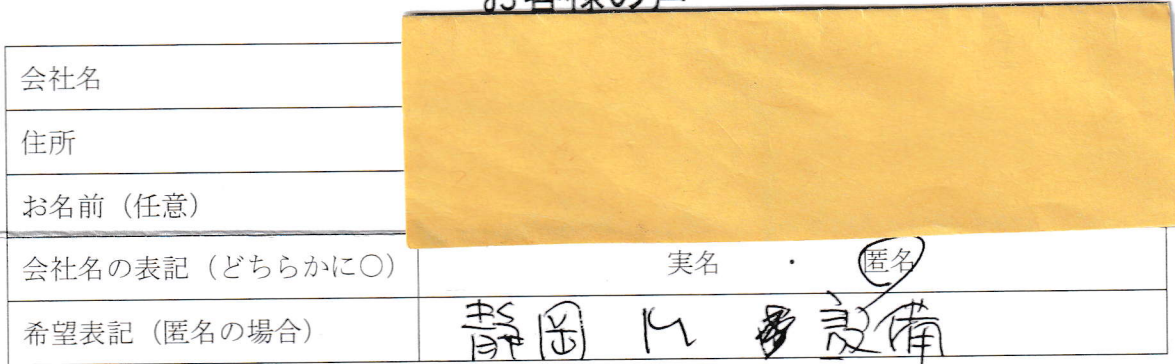 お客様の声
会社名
住所
お名前（任意）
会社名の表記（どちらかに〇） 実名 ・ 匿名
希望表記（匿名の場合） 静岡 設備